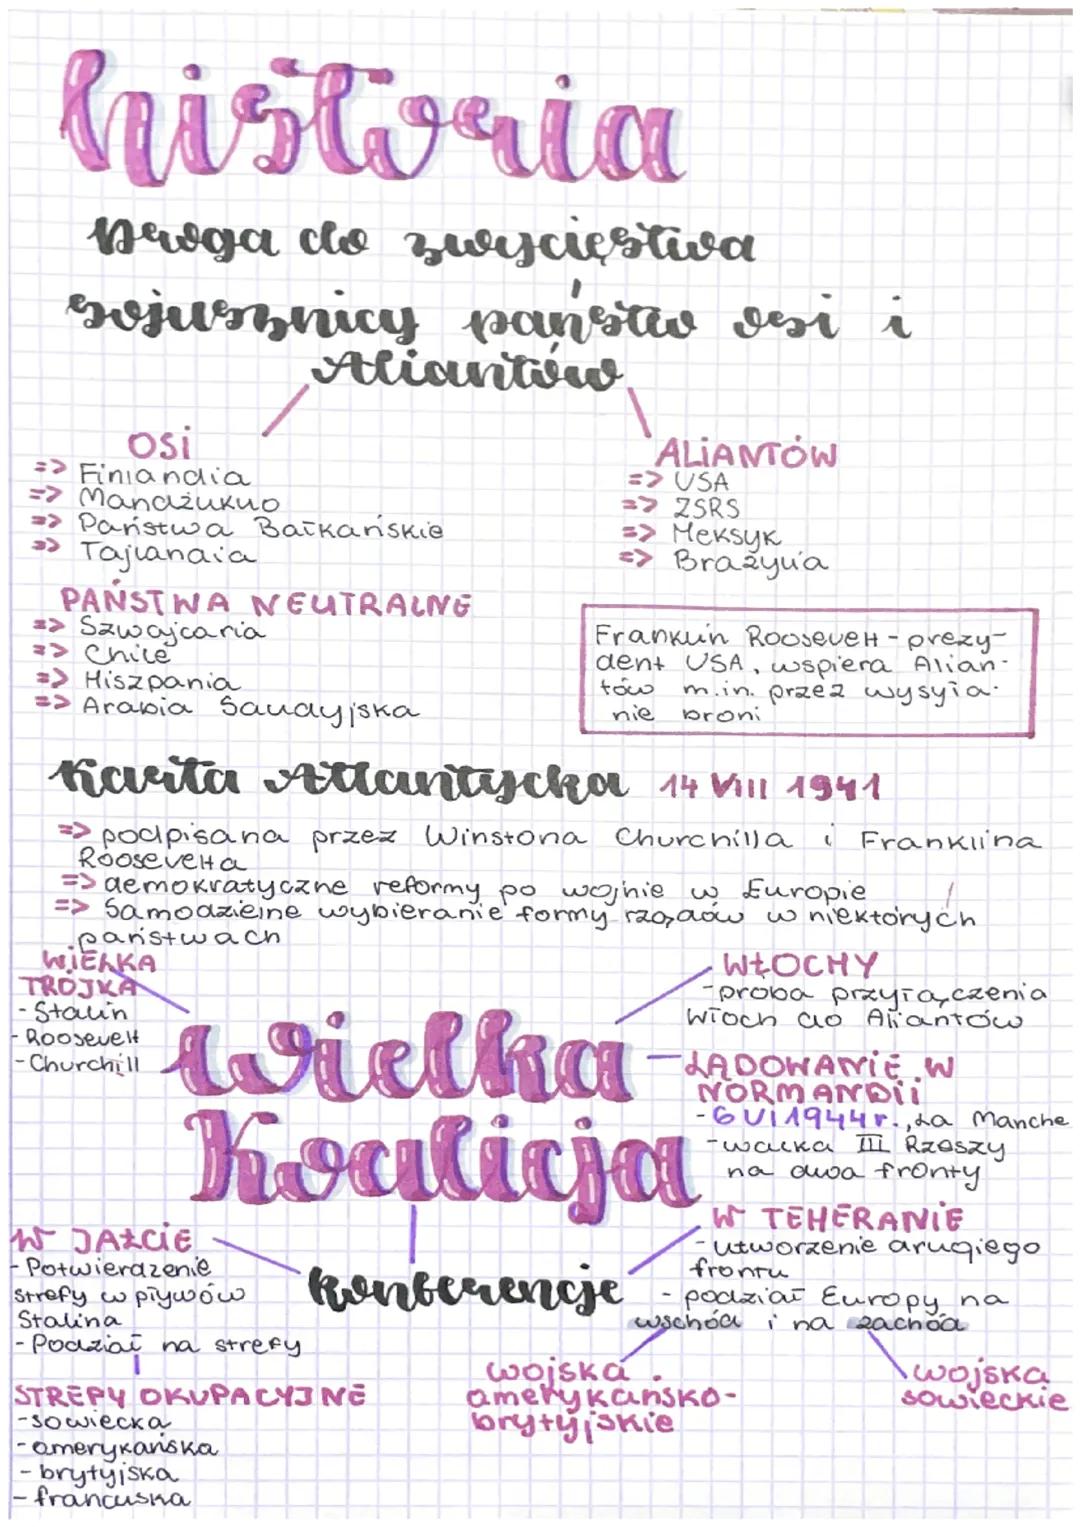 historia
Droga do zwycięstwa
sojusznicy państw osi i
Aliantów
OSi
=> Finlandia
=> Mandżukuo
=> Państwa Bałkańskie
=> Tajlandia
ALiANTÓW
=> USA
=> ZSRS
=> Meksyk
=> Brazylia
PAŃSTWA NEUTRALNE
=> Szwajcaria
=> Chile
=> Hiszpania
=> Arabia Saudyjska
Franklin Roosevelt - prezy-
dent USA, wspiera Alian-
tów m.in. przez wysyła-
nie broni
Karta Atlantycka 14 VIII 1941
=> podpisana przez Winstona Churchilla i Franklina
Roosevelta
=> demokratyczne reformy po wojnie w Europie
=> Samodzielne wybieranie formy rządów w niektórych
państwach
WiELKA
TRÓJKA
- Stalin
- Roosevelt
- Churchill
Wielka
Koalicja
WŁOCHY
- próba przyłączenia
Włoch do Aliantów
LĄDOWANiE W
NORMANDii
- 6 VI 1944 r., La Manche
- walka III Rzeszy
na dwa fronty
W JAŁCiE
- Potwierdzenie
strefy wpływów
Stalina
- Podział na strefy
konferencje
W TEHERANiE
- utworzenie drugiego
frontu
- podział Europy na
wschód i na zachód
wojska
amerykańsko-
brytyjskie
wojska
sowieckie
STREFY OKUPACYJNE
- sowiecka
- amerykańska
- brytyjska
- francuska